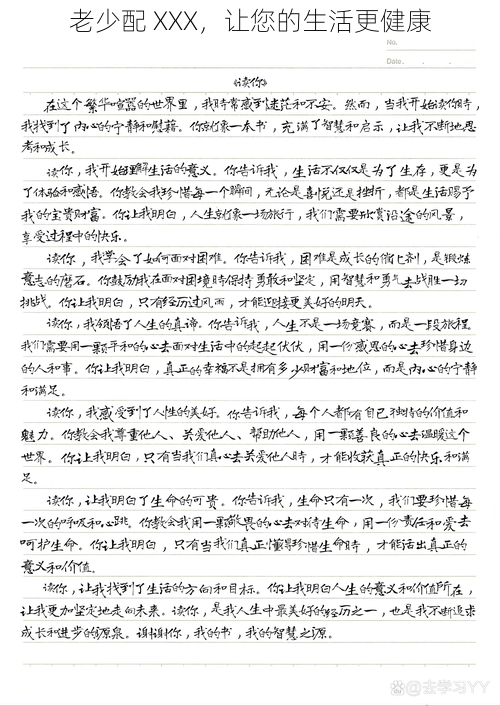 老少配 XXX，让您的生活更健康
No.
Date. . .
《读你》
在这个繁华喧嚣的世界里，我时常感到迷茫和不安。然而，当我开始读你时，
我找到了内心的宁静和慰藉。你就像一本书，充满了智慧和启示，让我不断地思
考和成长。
读你，我开始理解生活的意义。你告诉我，生活不仅仅是为了生存，更是为
了体验和感悟。你教会我珍惜每一个瞬间，无论是喜悦还是挫折，都是生活赐予
我的宝贵财富。你让我明白，人生就像一场旅行，我们需要欣赏沿途的风景，
享受过程中的快乐。
读你，我学会了如何面对困难。你告诉我，困难是成长的催化剂，是锻炼
意志的磨石。你鼓励我在面对困境时保持勇敢和坚定，用智慧和勇气去战胜一切
挑战。你让我明白，只有经历过风雨，才能迎接更美好的明天。
读你，我领悟了人生的真谛。你告诉我，人生不是一场竞赛，而是一段旅程。
我们需要用一颗平和的心去面对生活中的起起伏伏，用一份感恩的心去珍惜身边
的人和事。你让我明白，真正的幸福不是拥有多少财富和地位，而是内心的宁静
和满足。
读你，我感受到了人性的美好。你告诉我，每个人都有自己独特的价值和
魅力。你教会我尊重他人、关爱他人、帮助他人，用一颗善良的心去温暖这个
世界。你让我明白，只有当我们真心去关爱他人时，才能收获真正的快乐和满
足。
读你，让我明白了生命的可贵。你告诉我，生命只有一次，我们要珍惜每
一次的呼吸和心跳。你教会我用一颗敬畏的心去对待生命，用一份责任和爱去
呵护生命。你让我明白，只有当我们真正懂得珍惜生命时，才能活出真正的
意义和价值。
读你，让我找到了生活的方向和目标。你让我明白人生的意义和价值所在，
让我更加坚定地走向未来。读你，是我人生中最美好的经历之一，也是我不断追求
成长和进步的源泉。谢谢你，我的书，我的智慧之源。
@去学习YY